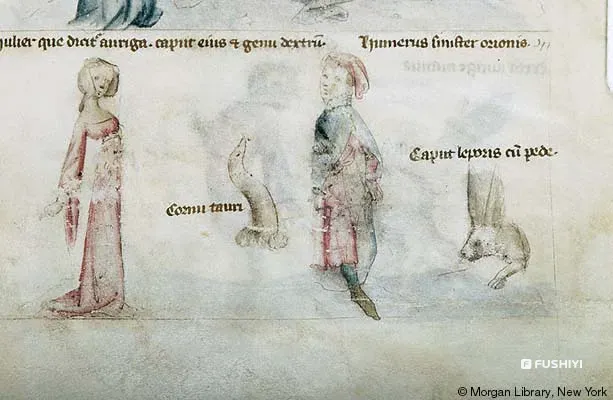 mulier que dicit͛ auriga. caput eius ⁊ genu dextrū.
Humerus sinister orionis.
Caput leporis cū pede.
Cornu tauri
FUSHIYI
© Morgan Library, New York